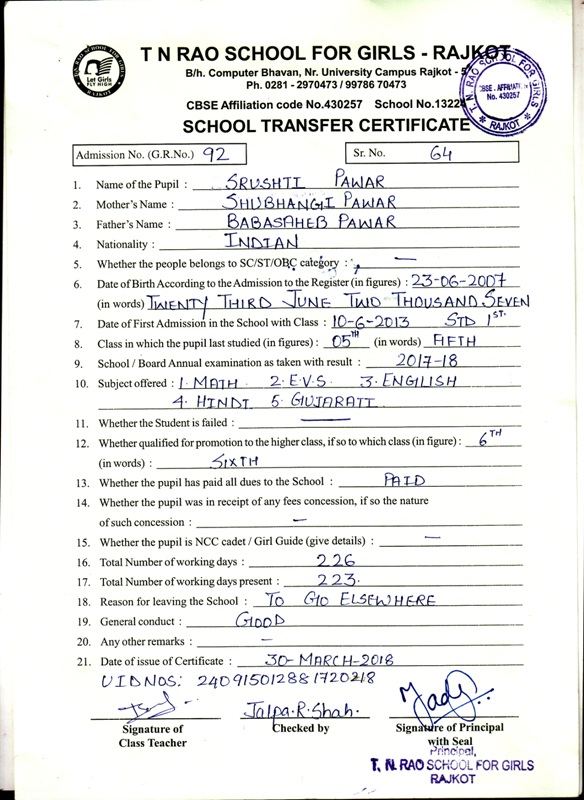 T N RAO SCHOOL FOR GIRLS - RAJKOT
B/h. Computer Bhavan, Nr. University Campus Rajkot -
Ph. 0281 - 2970473 / 99786 70473
CBSE Affiliation code No.430257 School No.1322
SCHOOL TRANSFER CERTIFICATE
Let Girls
FLY HIGH
RAJKOT
T. N. RAO SCHOOL FOR GIRLS
CBSE - AFFILIATION
No. 430257
* RAJKOT *
Admission No. (G.R.No.) 92 Sr. No. 64
1. Name of the Pupil : SRUSHTI PAWAR
2. Mother's Name : SHUBHANGI PAWAR
3. Father's Name : BABASAHEB PAWAR
4. Nationality : INDIAN
5. Whether the people belongs to SC/ST/OBC category : —
6. Date of Birth According to the Admission to the Register (in figures) : 23-06-2007
(in words) TWENTY THIRD JUNE TWO THOUSAND SEVEN
7. Date of First Admission in the School with Class : 10-6-2013 STD 1ST.
8. Class in which the pupil last studied (in figures) : 05TH (in words) FIFTH
9. School / Board Annual examination as taken with result : 2017-18
10. Subject offered : 1. MATH 2. E.V.S. 3. ENGILISH
4. HINDI 5. GUJARATI
11. Whether the Student is failed : —
12. Whether qualified for promotion to the higher class, if so to which class (in figure) : 6TH
(in words) : SIXTH
13. Whether the pupil has paid all dues to the School : PAID
14. Whether the pupil was in receipt of any fees concession, if so the nature
of such concession : —
15. Whether the pupil is NCC cadet / Girl Guide (give details) : —
16. Total Number of working days : 226
17. Total Number of working days present : 223.
18. Reason for leaving the School : TO GO ELSEWHERE
19. General conduct : GOOD
20. Any other remarks : —
21. Date of issue of Certificate : 30-MARCH-2018
UIDNOS: 240915012881720218
Jalpa.R.Shah.
Signature of
Class Teacher
Checked by
Signature of Principal
with Seal
Principal,
T. N. RAO SCHOOL FOR GIRLS
RAJKOT